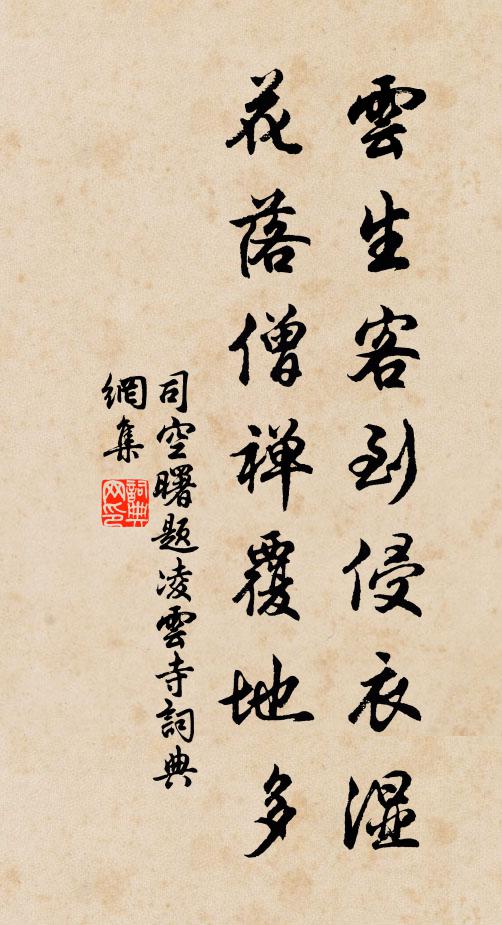 雲生客到侵衣濕
花落僧禅覆地多
司空曙題凌雲寺詞典
網集
詞典
网印